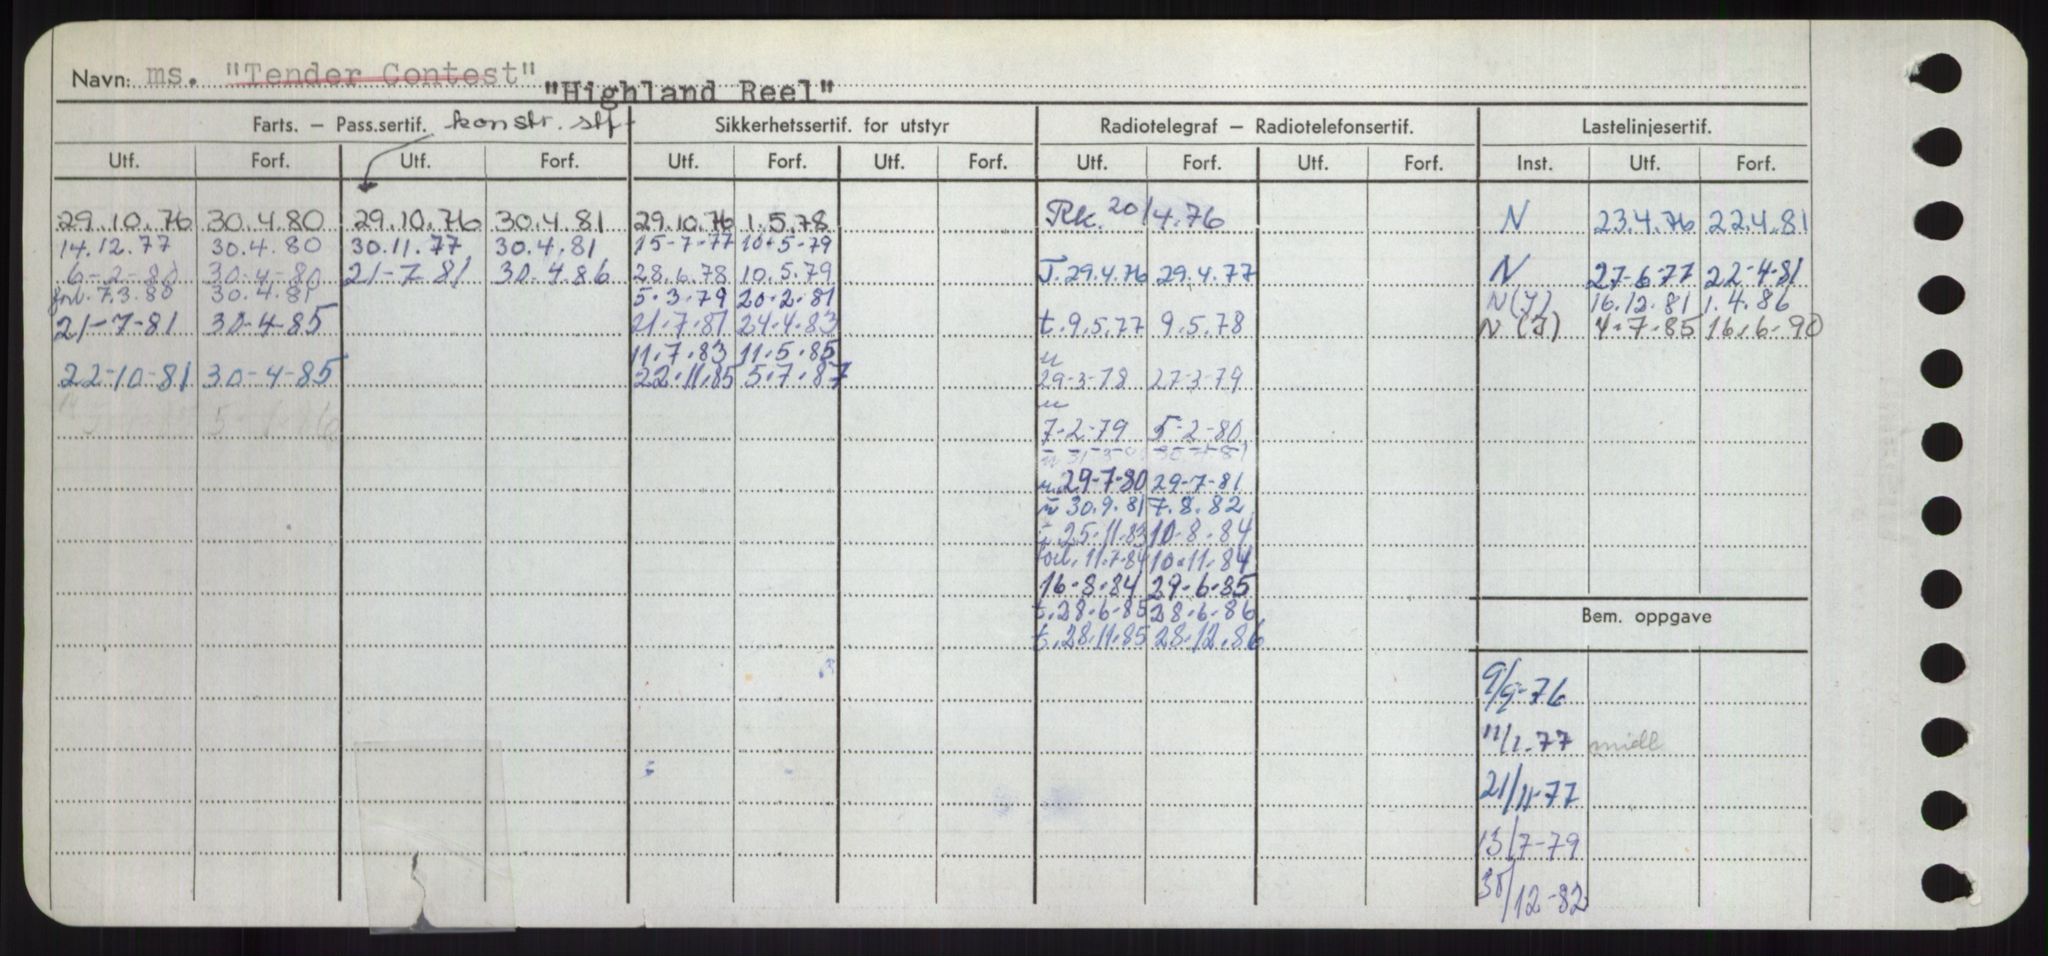 Navn: ms. "Tender Contest"
"Highland Reel"
Farts. — Pass.sertif. konstr. stf. Sikkerhetssertif. for utstyr Radiotelegraf — Radiotelefonsertif. Lastelinjesertif.
Utf. Forf. Utf. Forf. Utf. Forf. Utf. Forf. Utf. Forf. Utf. Forf. Inst. Utf. Forf.
29.10.76 30.4.80 29.10.76 30.4.81 29.10.76 1.5.78 Rk. 20/4.76 N 23.4.76 22.4.81
14.12.77 30.4.80 30.11.77 30.4.81 15-7-77 10-5-79
6-2-80 30-4-80 21-7-81 30.4.86 28.6.78 10.5.79 T.29.4.76 29.4.77 N 27-6-77 22-4-81
forl. 7.3.80 30.4.81 5.3.79 20.2.81 N(J) 16.12.81 1.4.86
21-7-81 30-4-85 21.7.81 24.4.83 t.9.5.77 9.5.78 N(J) 4.7.85 16.6.90
11.7.83 11.5.85
22-10-81 30-4-85 22.11.85 5.7.87 29-3-78 27-3-79
7-2-79 5-2-80
29-7-80 29-7-81
30.9.81 7.8.82
25.11.83 10.8.84
forl. 11.7.84 10.11.84
16.8.84 29.6.85
t.28.6.85 28.6.86
Bem. oppgave
t.28.11.85 28.12.86
9/9-76
11/1.77 midl
21/11-77
13/7-79
30/12-82